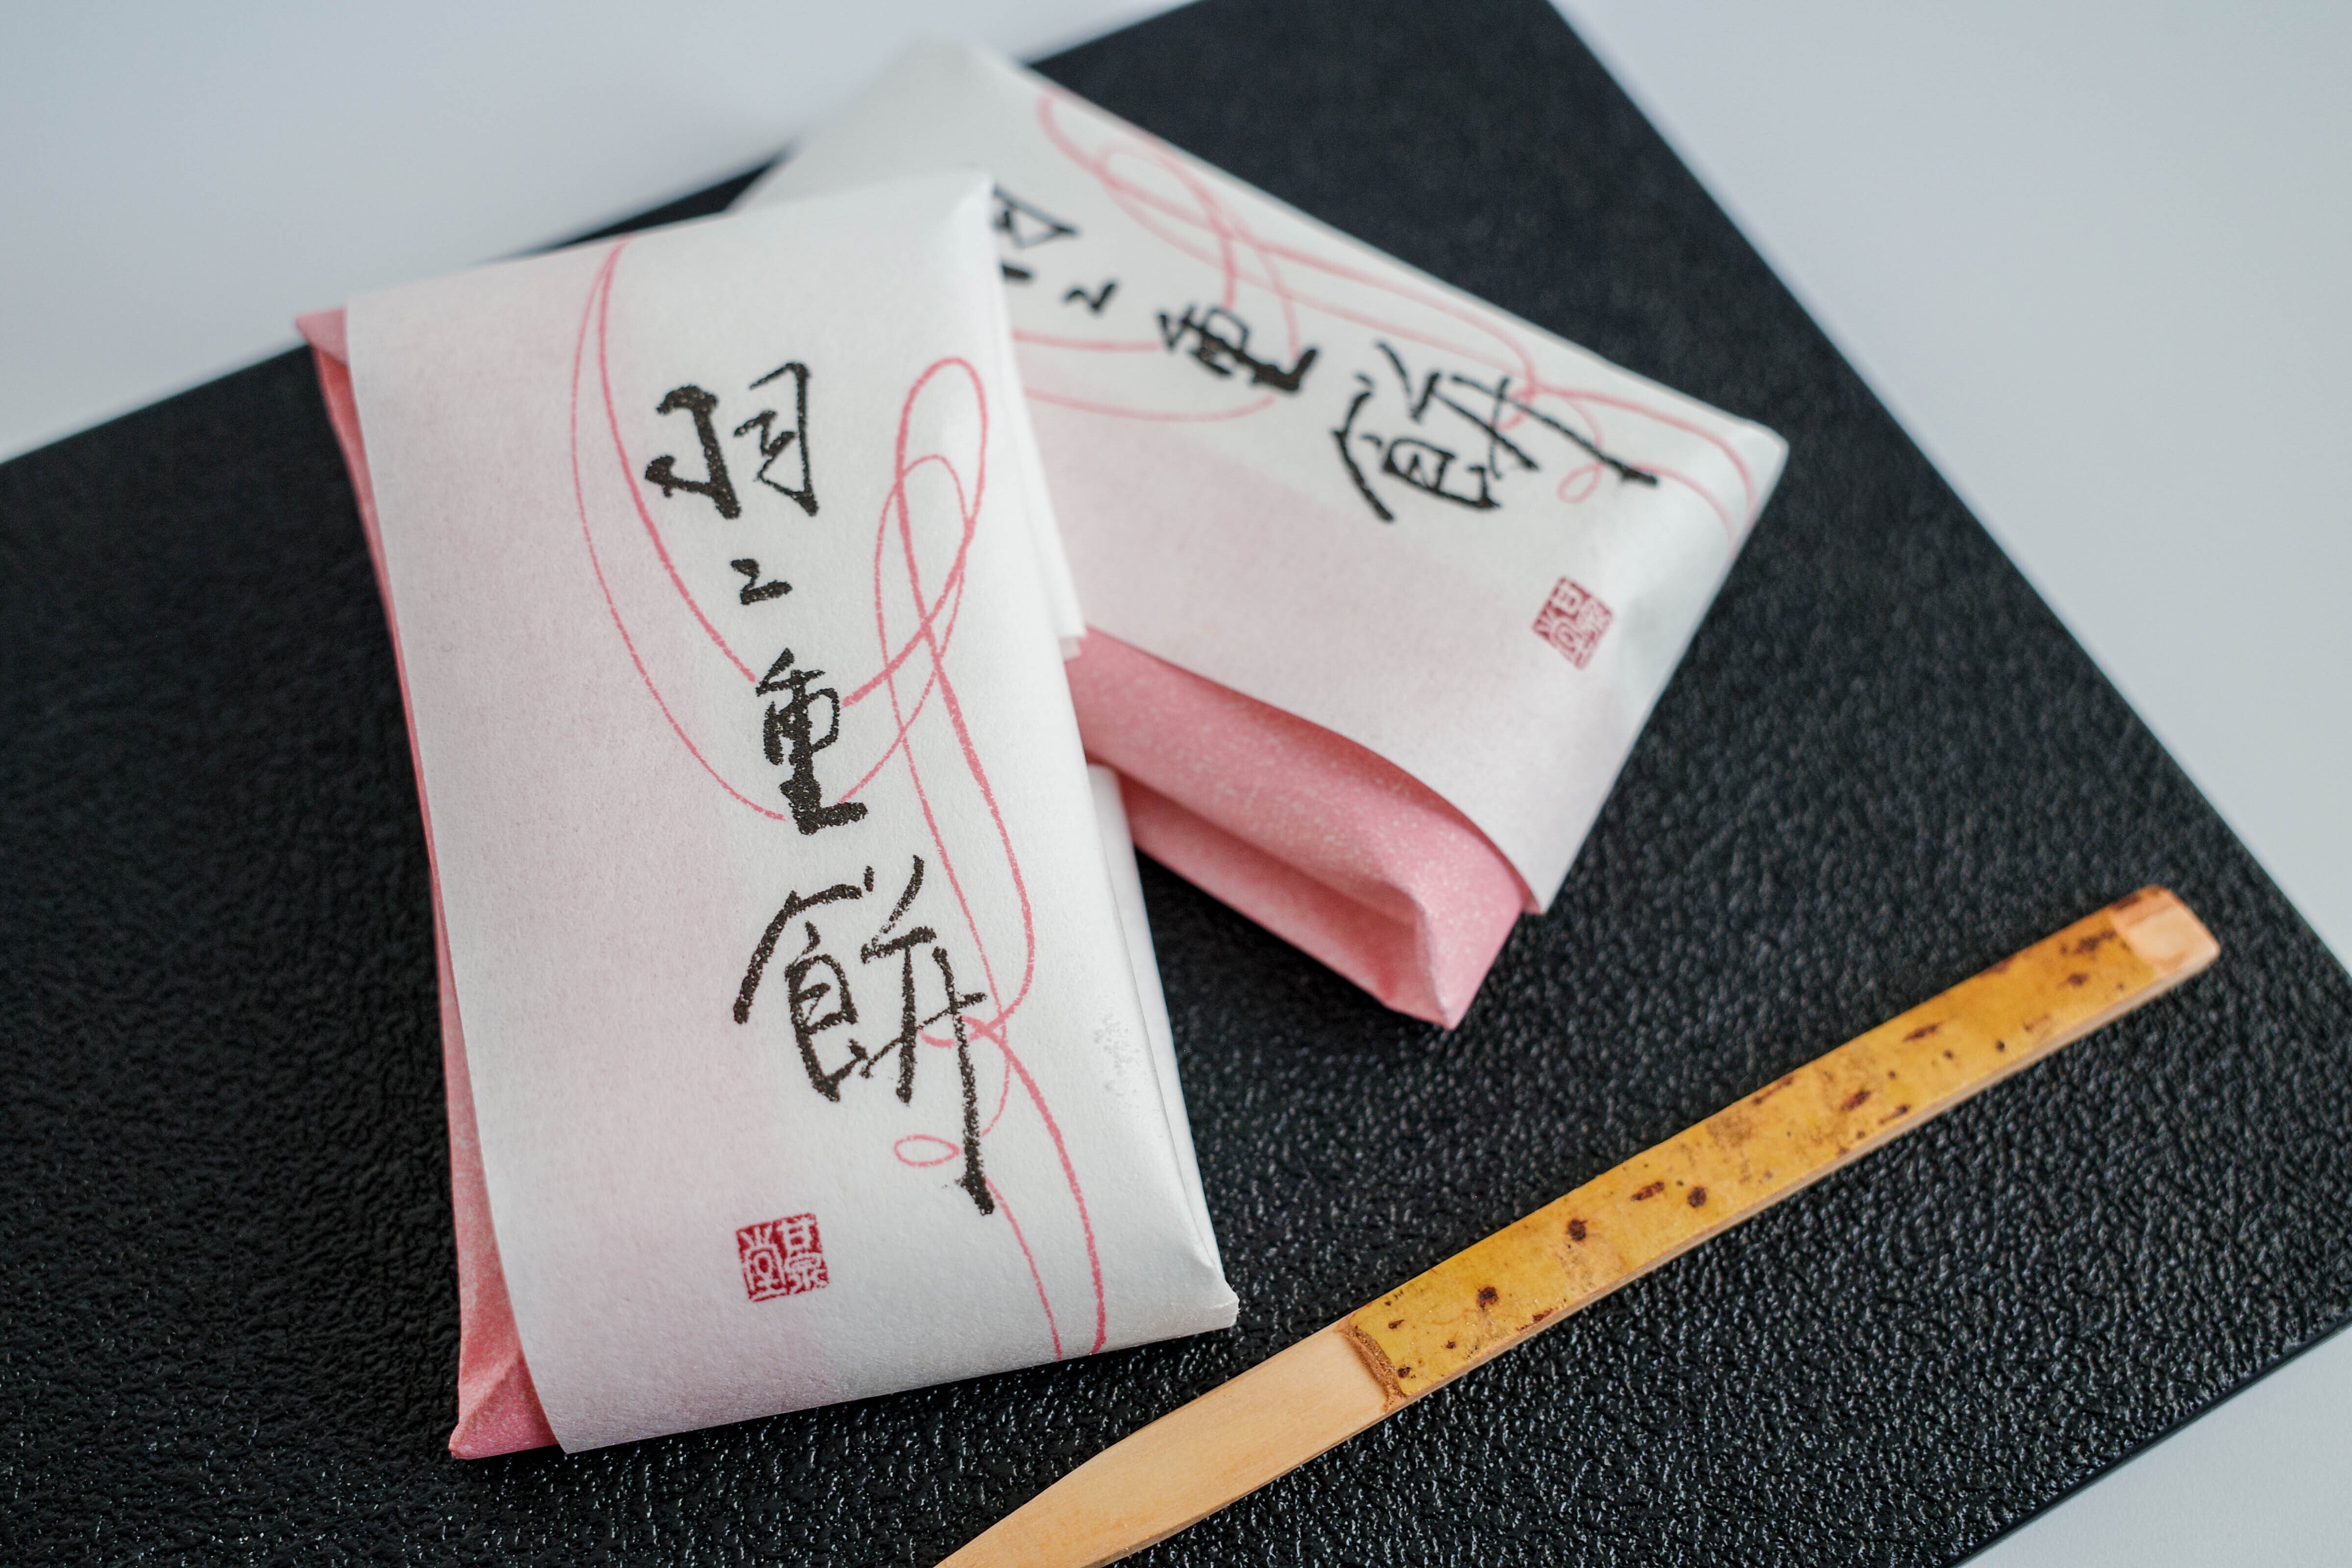 羽二重餅
甘泉堂
羽二重餅
甘泉堂